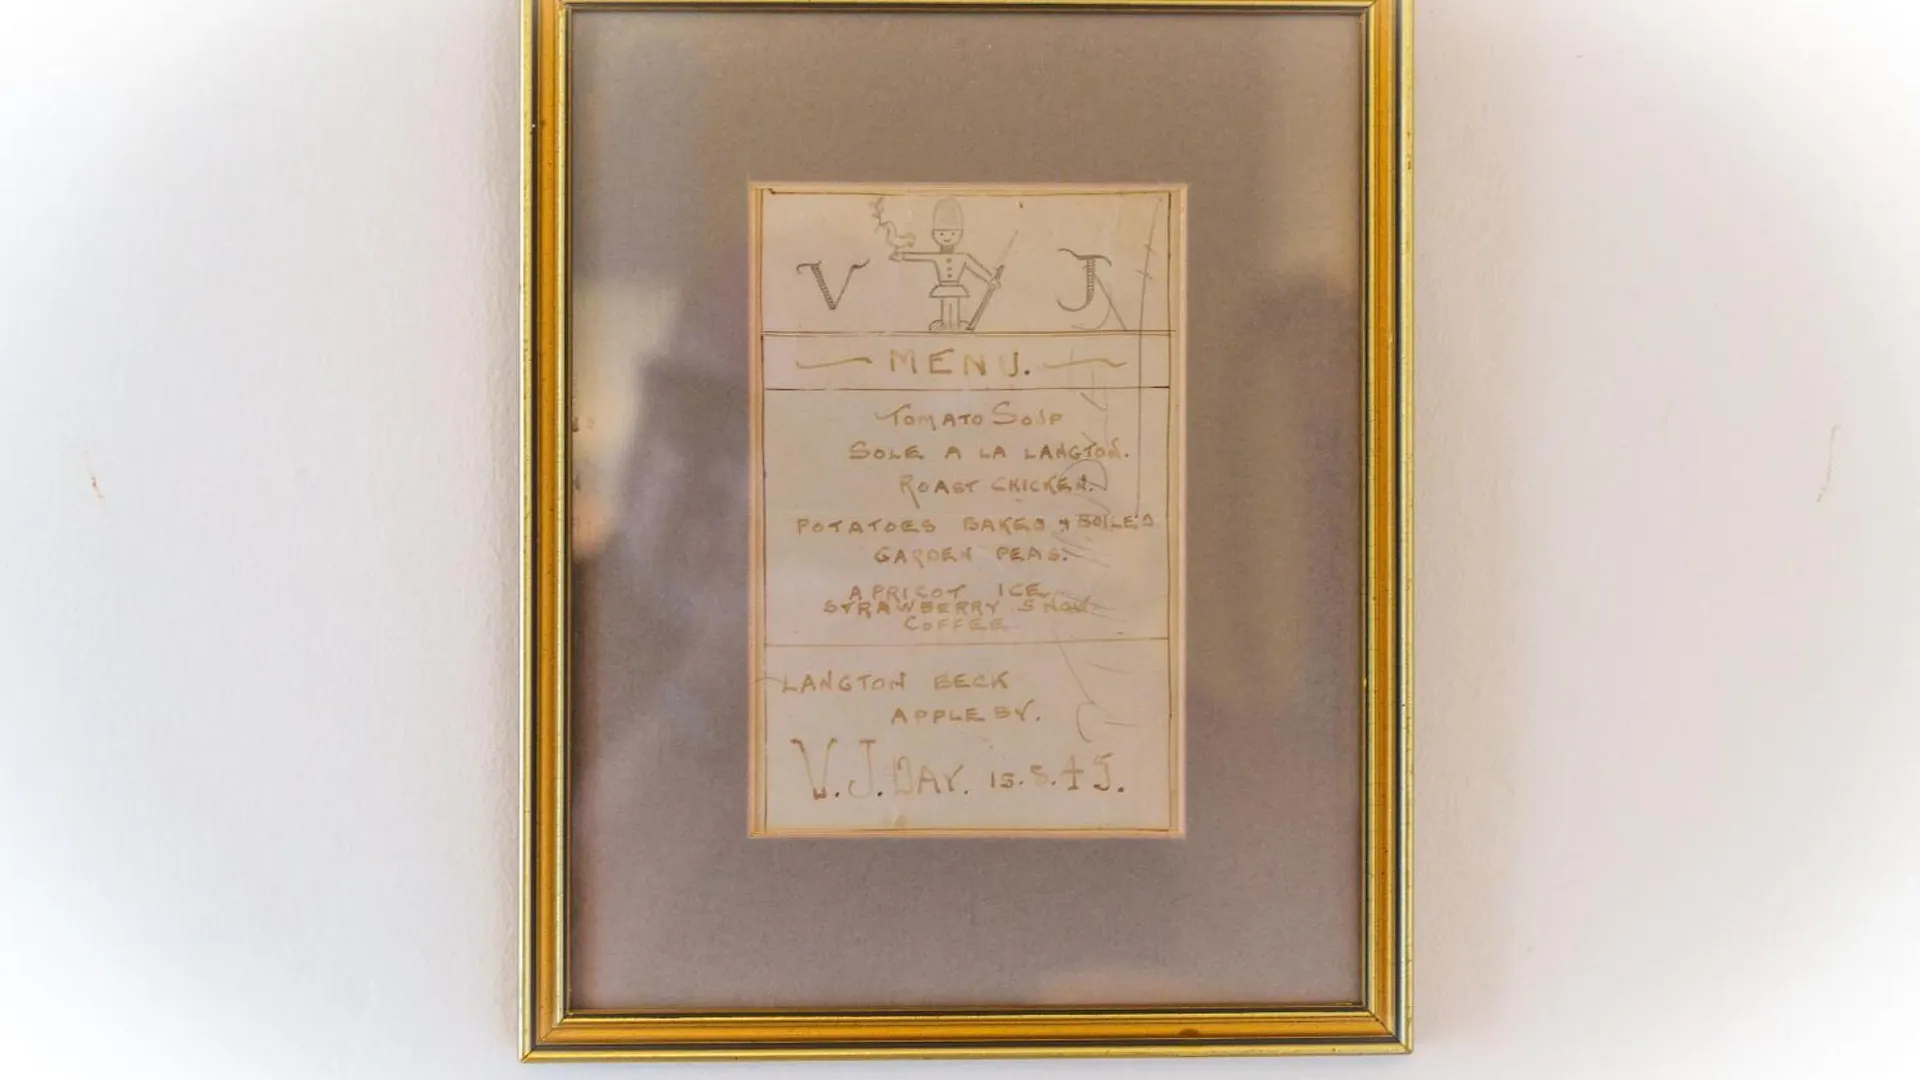 V J
MENU.
TOMATO SOUP
SOLE A LA LANGTON.
ROAST CHICKEN.
POTATOES BAKED & BOILED
GARDEN PEAS.
APRICOT ICE
STRAWBERRY SNOW
COFFEE
LANGTON BECK
APPLEBY.
V.J. DAY. 15.8.45.